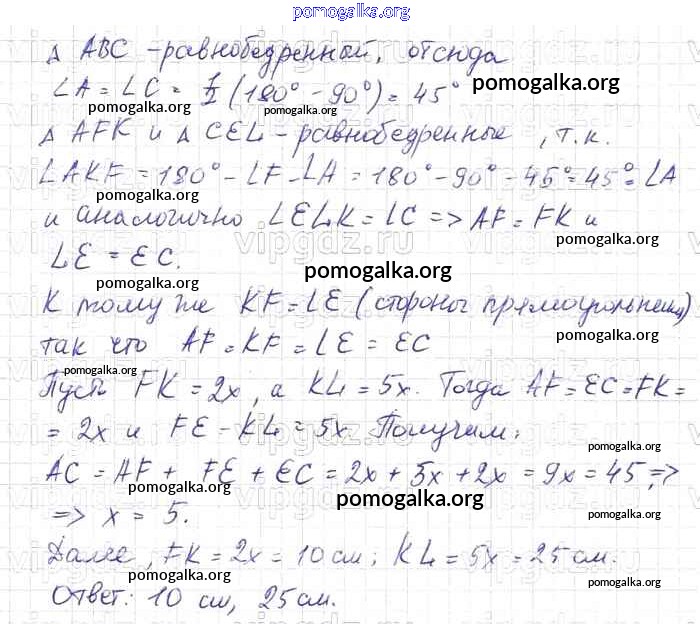 pomogalka.org
Δ ABC - равнобедренный, отсюда
∠A = ∠C = 1/2 (180° - 90°) = 45° pomogalka.org
pomogalka.org pomogalka.org
Δ AFK и Δ CEL - равнобедренные, т.к.
pomogalka.org
∠AKF = 180° - ∠F - ∠A = 180° - 90° - 45° = 45° = ∠A
pomogalka.org
и аналогично ∠ELK = ∠C => AF = FK и
pomogalka.org
LE = EC.
pomogalka.org
К тому же KF = LE (стороны прямоугольника)
pomogalka.org
так что AF = KF = LE = EC
pomogalka.org
Пусть FK = 2x, а KL = 5x. Тогда AF = EC = FK =
= 2x и FE = KL = 5x. Получим:
pomogalka.org
AC = AF + FE + EC = 2x + 5x + 2x = 9x = 45 =>
pomogalka.org pomogalka.org
=> x = 5.
pomogalka.org
Далее, FK = 2x = 10 см; KL = 5x = 25 см.
pomogalka.org pomogalka.org
Ответ: 10 см, 25 см.